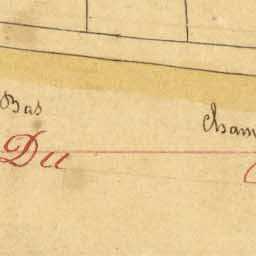 Bas Cham
Du